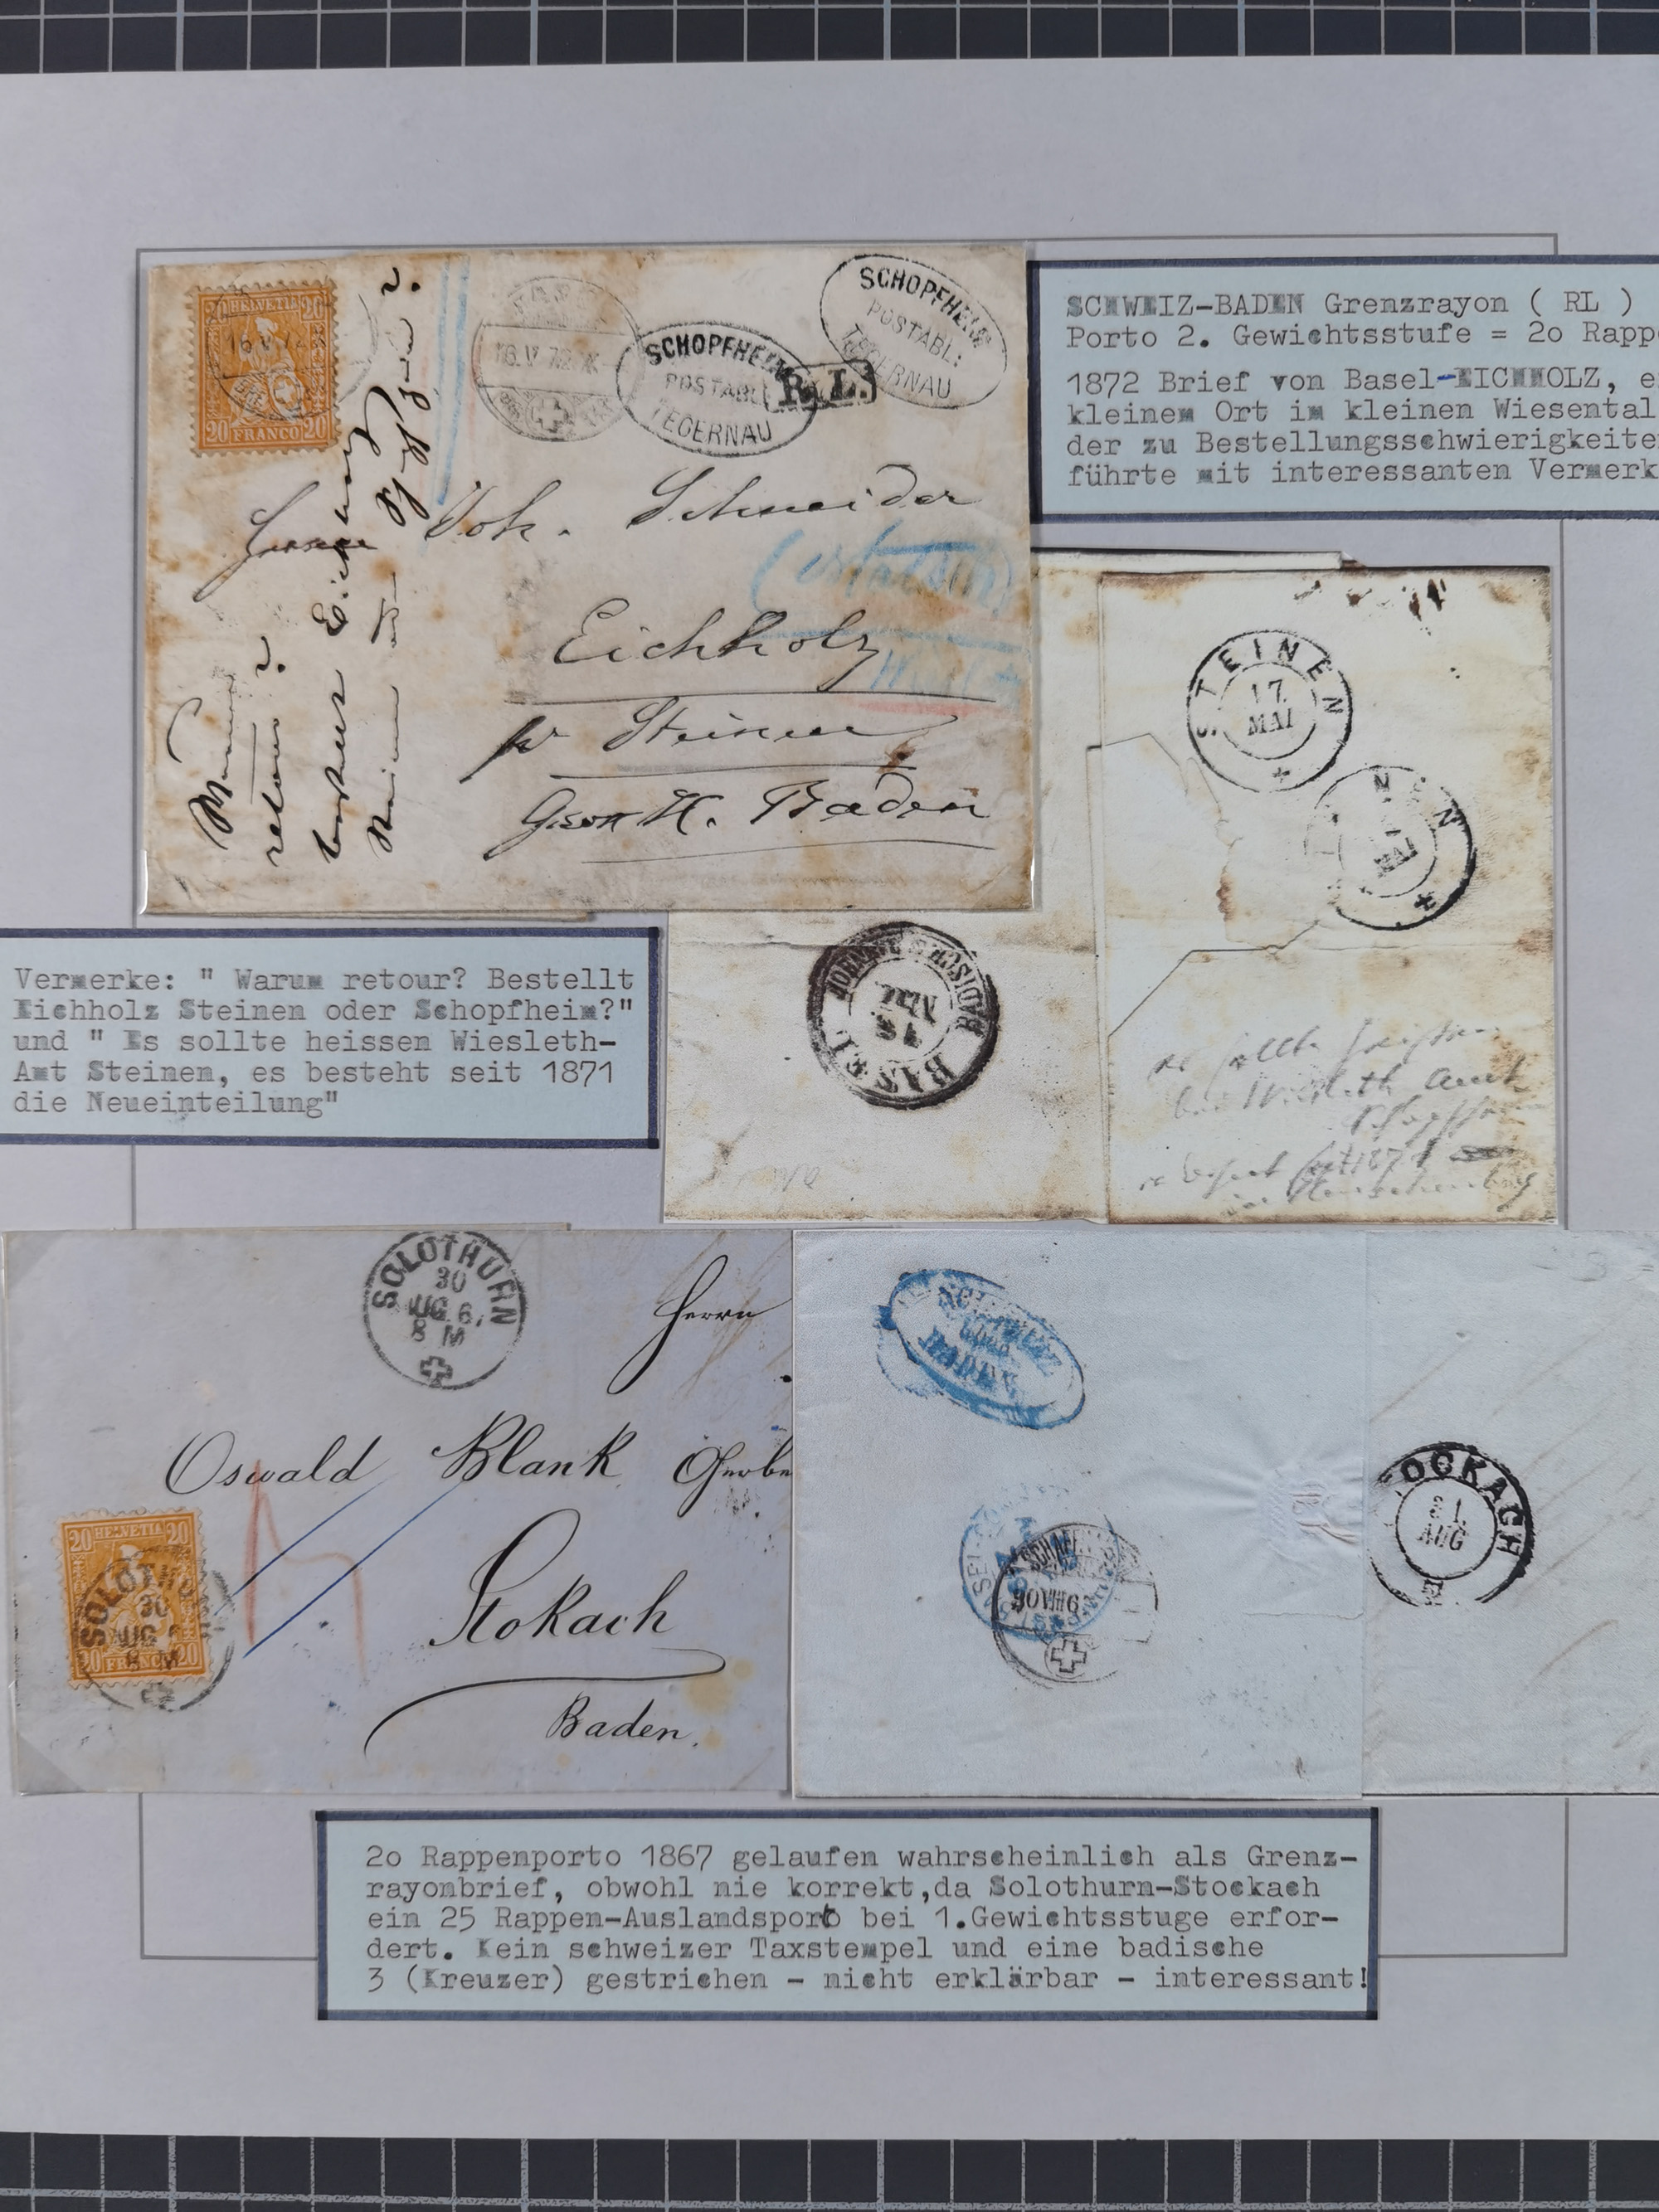 20 HELVETIA 20
20 FRANCO 20
16 V 72
16. V. 72
SCHOPFHEIM
POSTABL:
TEGERNAU
R.L.
SCHOPFHEIM
POSTABL:
TEGERNAU
Joh. Schneider
Eichholz
pr Steinen
Baden
Warum
retour?
Eichholz
SCHWEIZ-BADEN Grenzrayon ( RL )
Porto 2. Gewichtsstufe = 2o Rapp
1872 Brief von Basel-EICHHOLZ, e
kleinem Ort im kleinen Wiesental
der zu Bestellungsschwierigkeite
führte mit interessanten Vermerk
STEINEN
17
MAI
NEN
MAI
BADISCH. BAHNHOF
BASEL
Vermerke: " Warum retour? Bestellt
Eichholz Steinen oder Schopfheim?"
und " Es sollte heissen Wiesleth-
Amt Steinen, es besteht seit 1871
die Neueinteilung"
SOLOTHURN
30
AUG 6
8 M
Herrn
Oswald Blank
Stokach
Baden.
20 HELVETIA 20
20 FRANCO 20
SOLOTHURN
30
AUG 6
SCHWEIZ
BADEN
30 VIII 6
STOCKACH
31
AUG
2o Rappenporto 1867 gelaufen wahrscheinlich als Grenz-
rayonbrief, obwohl nie korrekt,da Solothurn-Stockach
ein 25 Rappen-Auslandsporto bei 1.Gewichtsstuge erfor-
dert. Kein schweizer Taxstempel und eine badische
3 (Kreuzer) gestrichen - nicht erklärbar - interessant!